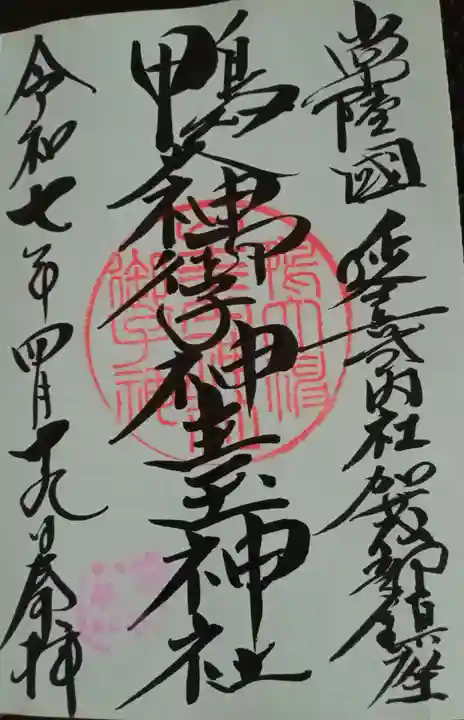 常陸國 延喜式内社加波山郡鎮座
鴨大神御子神主玉神社
令和七年四月十九日奉拝